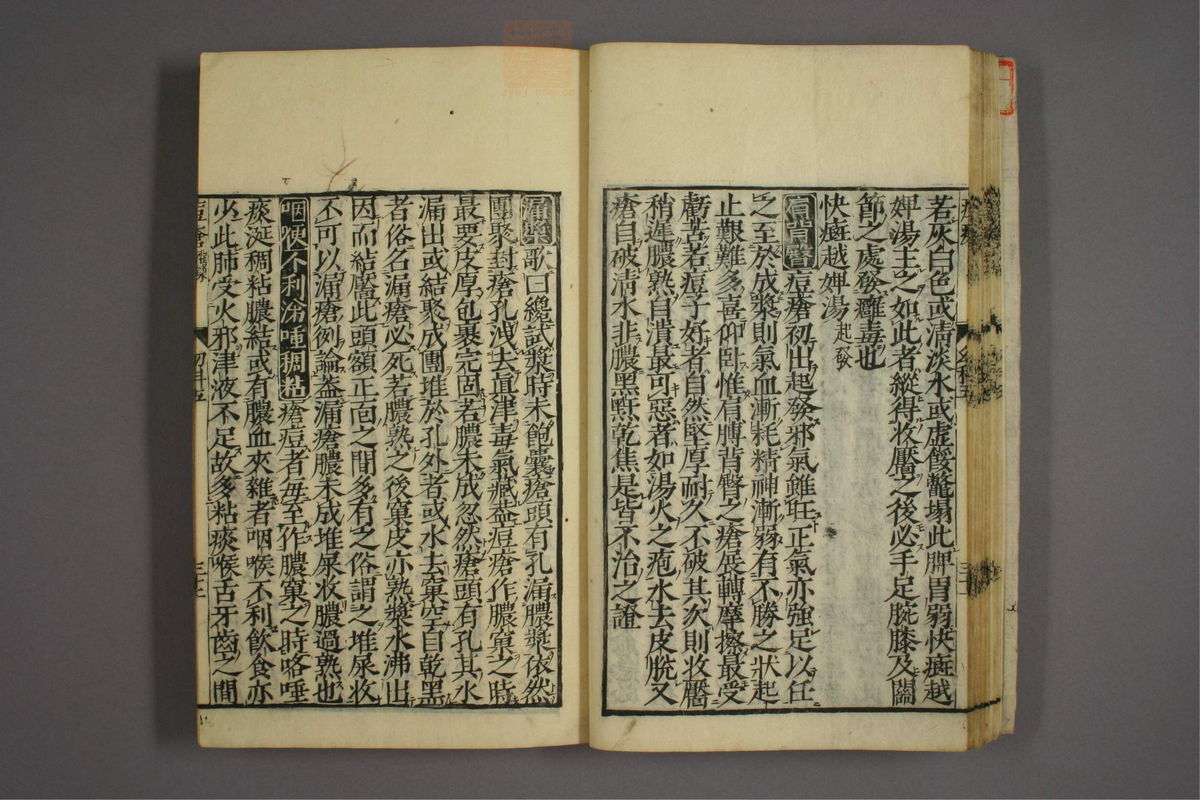 若灰白色或清淡水或虛餒鼈塌此脾胃弱快癍越
婢湯主之如此者縱得收靨之後必手足腕膝及關
節之處發癰毒也
快癍越婢湯起發
肩背臀痘瘡初出起發邪氣雖旺正氣亦強足以任
之至於成漿則氣血漸耗精神漸弱有不勝之狀起
止艱難多喜仰臥惟有膊背臀之瘡展轉摩擦最受
虧苦若痘子好者自然堅厚耐久不破其次則收靨
稍遲膿熟自潰最可惡者如湯火之疱水去皮脫又
瘡自破清水非膿黑黶乾焦是皆不治之證
漏漿歌曰纔試漿時未飽囊瘡頭有孔漏膿漿依然
團聚封瘡孔洩去真津毒氣藏蓋痘瘡作膿窠之時
最要皮厚包裹完固若膿未成忽然瘡頭有孔其水
漏出或結聚成團堆於孔外者或水去窠空自乾黑
者俗名漏瘡必死若膿熟之後窠皮亦熟漿水沸出
因而結靨此頭額正面之間多有之俗謂之堆屎收
不可以漏瘡例論蓋漏瘡膿未成堆屎收膿過熟也
咽喉不利涕唾稠粘瘡痘者每至作膿窠之時咯唾
痰涎稠粘膿結或有膿血夾雜者咽喉不利飲食亦
少此肺受火邪津液不足故多粘痰喉舌牙齒之間